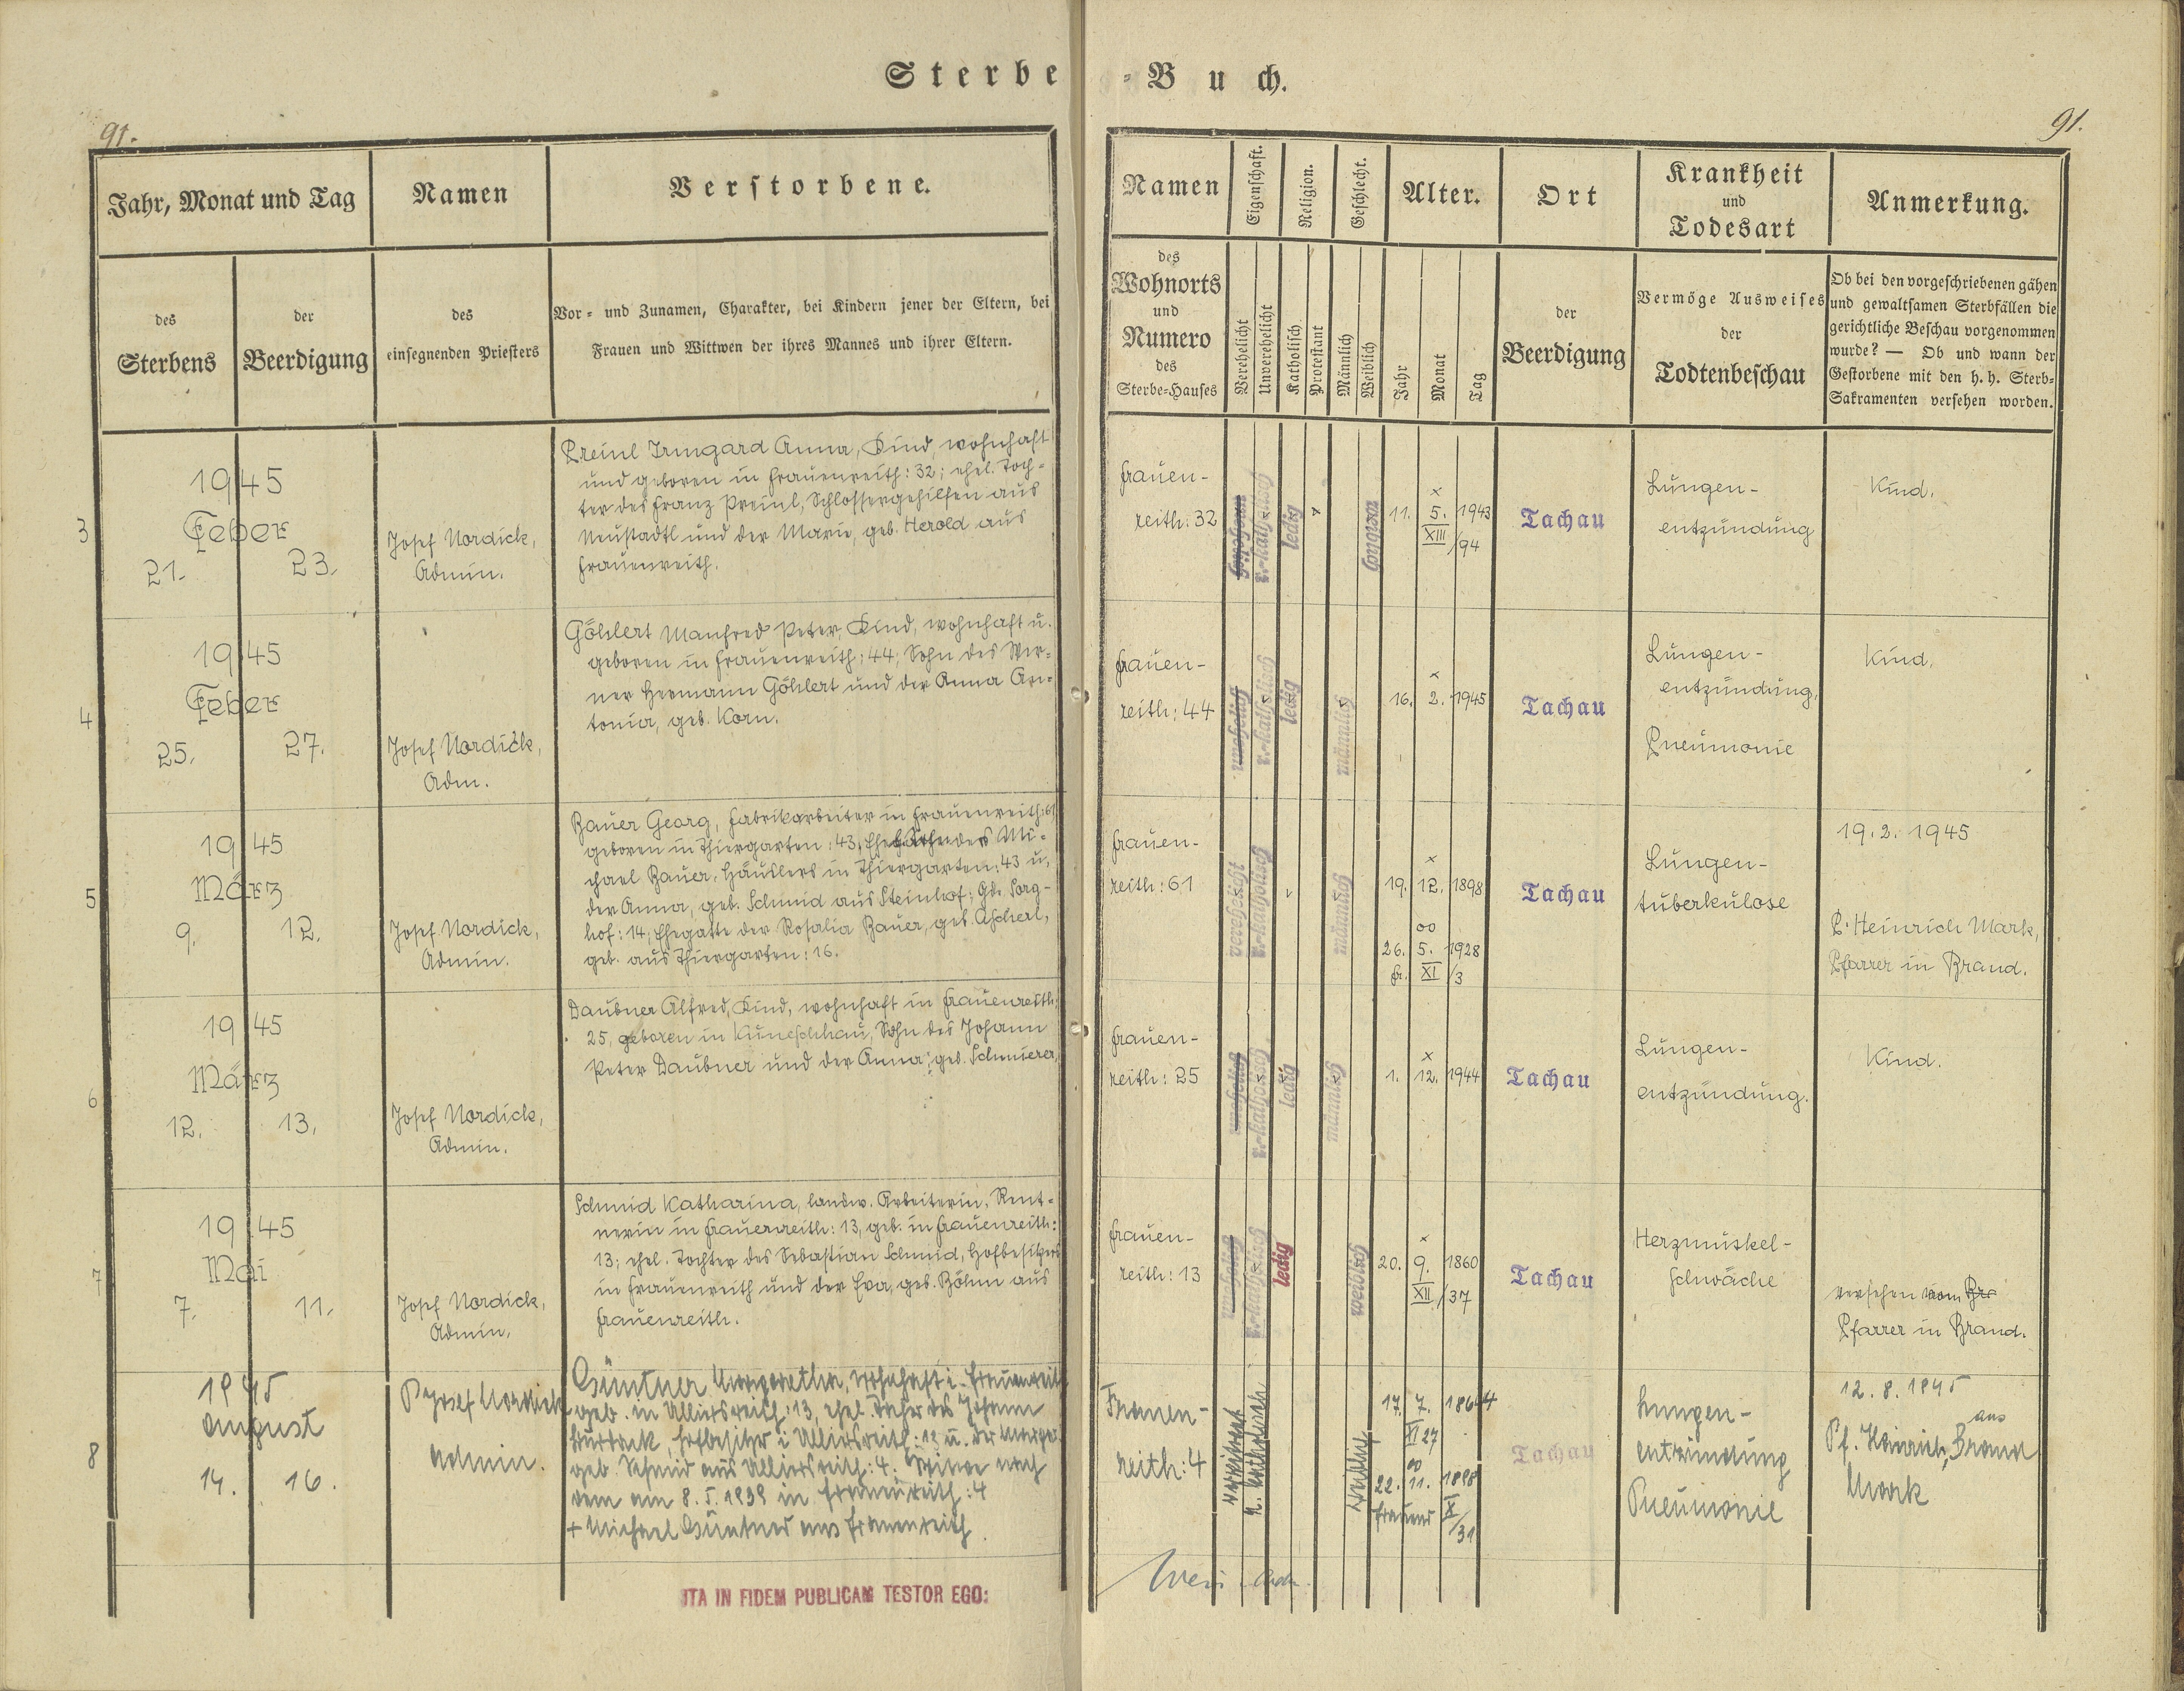 Sterbe-Buch.
91.
91.
Jahr, Monat und Tag
Namen
Verstorbene.
des
Sterbens
der
Beerdigung
des
einsegnenden Priesters
Vor- und Zunamen, Charakter, bei Kindern jener der Eltern, bei
Frauen und Wittwen der ihres Mannes und ihrer Eltern.
Namen
Eigenschaft.
Religion.
Geschlecht.
Alter.
Ort
Krankheit
und
Todesart
Anmerkung.
des
Wohnorts
und
Numero
des
Sterbe-Hauses
Verehelicht
Unverehelicht
Katholisch
Protestant
Männlich
Weiblich
Jahr
Monat
Tag
der
Beerdigung
Vermöge Ausweises
der
Todtenbeschau
Ob bei den vorgeschriebenen gähen
und gewaltsamen Sterbfällen die
gerichtliche Beschau vorgenommen
wurde? — Ob und wann der
Gestorbene mit den h. h. Sterb-
Sakramenten versehen worden.
3
1945
Feber
21. 23.
Josef Nordick,
Admin.
Preinl Irmgard Anna, Kind, wohnhaft
und geboren in Frauenreith: 32; ehel. Toch-
ter des Franz Preinl, Schlossergehilfen aus
Neustadtl und der Marie, geb. Herold aus
Frauenreith.
Frauen-
reith: 32
r.-katholisch
ledig
x
11. 5. 1943
XIII/94
Tachau
Lungen-
entzündung
Kind.
4
1945
Feber
25. 27.
Josef Nordick,
Adm.
Göhlert Manfred Peter, Kind, wohnhaft u.
geboren in Frauenreith: 44; Sohn des Wer-
ner Hermann Göhlert und der Anna An-
tonia, geb. Korn.
Frauen-
reith: 44
unehelich
r.-katholisch
ledig
männlich
x
16. 2. 1945
Tachau
Lungen-
entzündung,
Pneumonie
Kind.
5
1945
März
9. 12.
Josef Nordick,
Admin.
Bauer Georg, Fabrikarbeiter in Frauenreith: 61
geboren in Thiergarten: 43, des Mi-
chael Bauer, Häuslers in Thiergarten: 43 u.
der Anna, geb. Schmid aus Steinhof; Gde. Sorg-
hof: 14; Ehegatte der Rosalia Bauer, geb. Ascherl,
geb. aus Thiergarten: 16.
Frauen-
reith: 61
verehelicht
r.-katholisch
männlich
x
19. 12. 1898
oo
26. 5. 1928
Fr. XI/3
Tachau
Lungen-
tuberkulose
19. 2. 1945
P. Heinrich Mark,
Pfarrer in Brand.
6
1945
März
12. 13.
Josef Nordick,
Admin.
Daubner Alfred, Kind, wohnhaft in Frauenreith:
25, geboren in Kuneschhau, Sohn des Johann
Peter Daubner und der Anna, geb. Schmierer,
Frauen-
reith: 25
unehelich
r.-katholisch
ledig
männlich
x
1. 12. 1944
Tachau
Lungen-
entzündung.
Kind.
7
1945
Mai
7. 11.
Josef Nordick,
Admin.
Schmid Katharina, landw. Arbeiterin, Rent-
nerin in Frauenreith: 13, geb. in Frauenreith:
13; ehel. Tochter des Sebastian Schmid, Hofbesitzers
in Frauenreith und der Eva, geb. Böhm aus
Frauenreith.
Frauen-
reith: 13
unehelich
r.-katholisch
ledig
weiblich
x
20. 9. 1860
XII/37
Tachau
Herzmuskel-
schwäche
versehen vom Br
Pfarrer in Brand.
8
1945
August
14. 16.
P Josef Nordick
Admin.
Güntner Margaretha, wohnhaft i. Frauenreith
geb. in Ulliersreith: 13, ehel. Tochter des Johann
Hofbesitzer i Ulliersreith: 13 u. der
geb. Schmid aus Ulliersreith: 4. Witwe nach
dem am 8. 5. 1939 in Frauenreith: 4
+ Michael Güntner aus Frauenreith.
Frauen-
reith: 4
verwitwet
r. katholisch
weiblich
17. 7. 1864
XI 27
oo
22. 11. 1898
Frauenr X/31
Tachau
Lungen-
entzündung
Pneumonie
12. 8. 1945
Pf. Heinrich aus Brand
Mark
ITA IN FIDEM PUBLICAM TESTOR EGO: